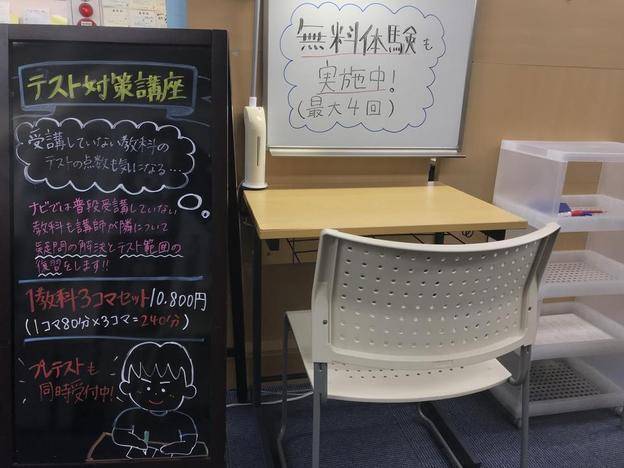 テスト対策講座
受講していない教科の
テストの点数も気になる…
ナビでは普段受講していない
教科も講師が隣について
疑問の解決とテスト範囲の
復習をします!!
1教科3コマセット10.800円
(1コマ80分×3コマ=240分)
プレテストも
同時受付中!
無料体験も
実施中!
(最大4回)